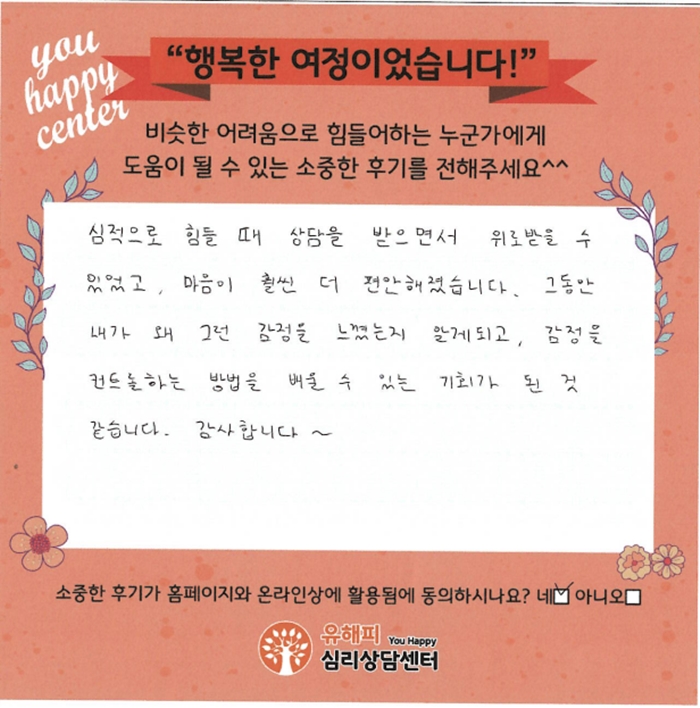 you
happy
center
“행복한 여정이었습니다!”
비슷한 어려움으로 힘들어하는 누군가에게
도움이 될 수 있는 소중한 후기를 전해주세요^^
심적으로 힘들 때 상담을 받으면서 위로받을 수
있었고, 마음이 훨씬 더 편안해졌습니다. 그동안
내가 왜 그런 감정을 느꼈는지 알게되고, 감정을
컨트롤하는 방법을 배울 수 있는 기회가 된 것
같습니다. 감사합니다~
소중한 후기가 홈페이지와 온라인상에 활용됨에 동의하시나요? 네☑ 아니오☐
유해피 You Happy
심리상담센터